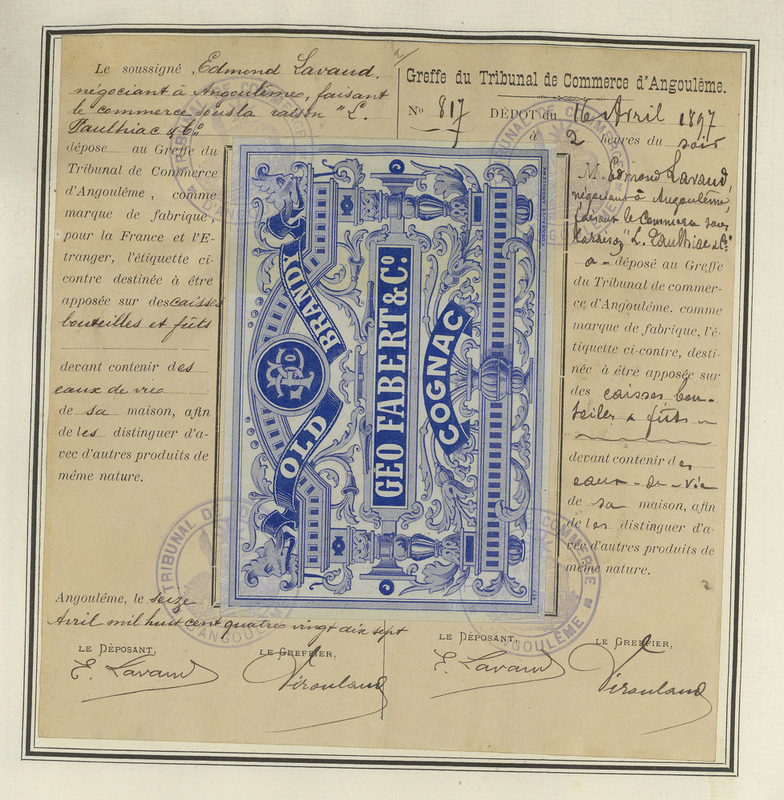 Le soussigné, Edmond Lavaud,
négociant à Angoulême, faisant
le commerce sous la raison "L.
Paulhiac & Co
dépose au Greffe du
Tribunal de Commerce
d'Angoulême, comme
marque de fabrique,
pour la France et l'É-
tranger, l'étiquette ci-
contre destinée à être
apposée sur des caisses
bouteilles et fûts
devant contenir des
eaux de vie
de sa maison, afin
de les distinguer d'a-
vec d'autres produits de
même nature.
Angoulême, le seize
Avril mil huit cent quatre vingt dix sept
LE DÉPOSANT,
E. Lavaud
LE GREFFIER,
Virouland
Greffe du Tribunal de Commerce d'Angoulême.
No 817 DÉPOT du 16 Avril 1897
à 2 heures du soir
M. Edmond Lavaud,
négociant à Angoulême,
faisant le Commerce sous
la raison "L. Paulhiac & Co"
a déposé au Greffe
du Tribunal de commer-
ce d'Angoulême. comme
marque de fabrique, l'é-
tiquette ci-contre, desti-
née à être apposée sur
des caisses bou-
teilles & fûts
devant contenir des
eaux-de-vie
de sa maison, afin
de les distinguer d'a-
vec d'autres produits de
même nature.
LE DÉPOSANT,
E. Lavaud
LE GREFFIER,
Virouland
OLD BRANDY
GÉO FABERT & Co
COGNAC
TRIBUNAL DE COMMERCE
D'ANGOULÊME